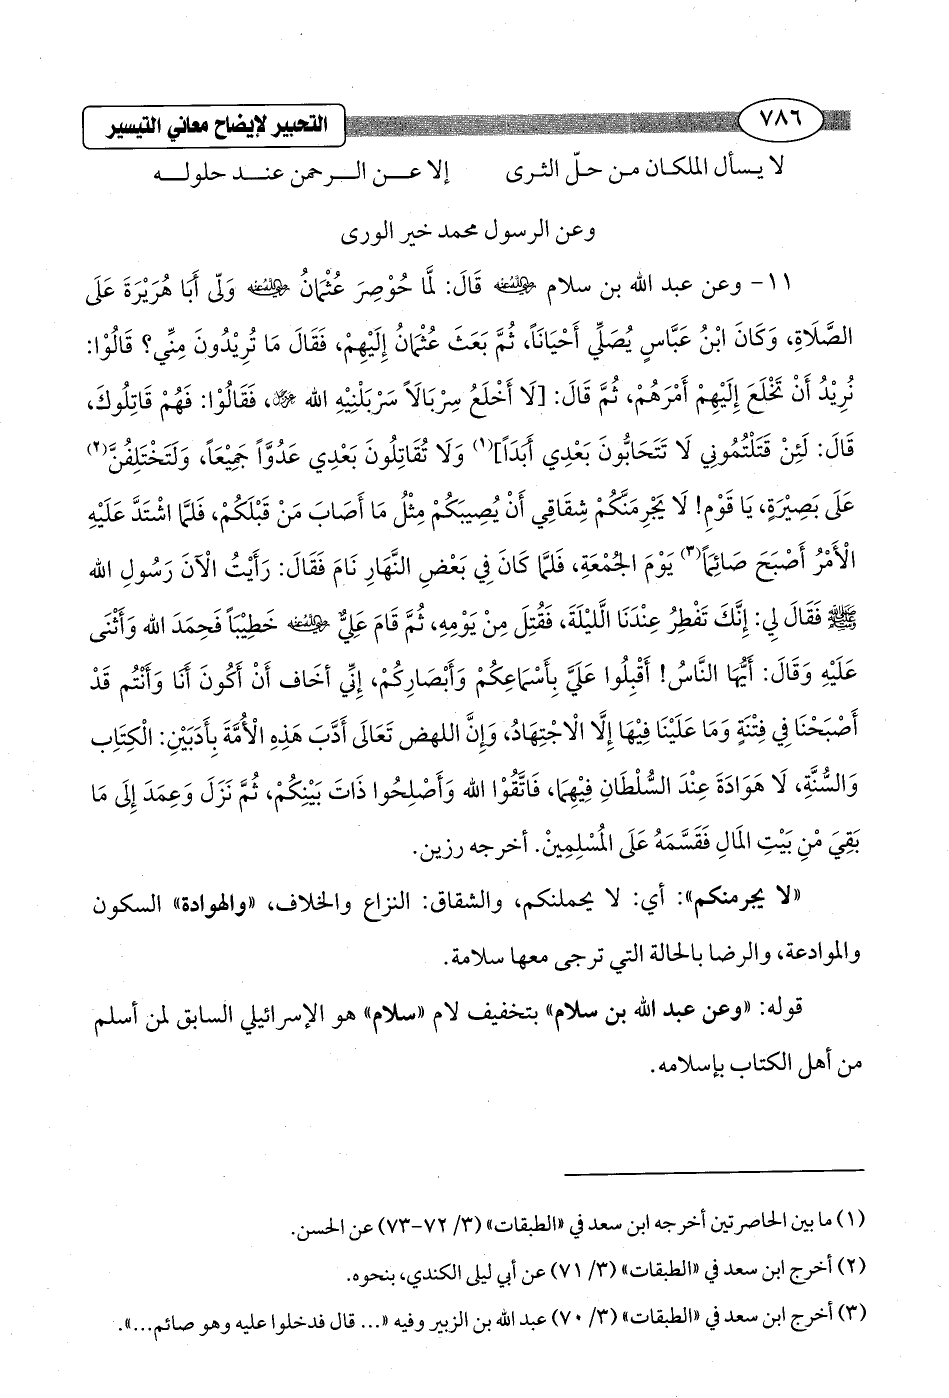 التحبير لإيضاح معاني التيسير ٧٨٦
لا يسأل الملكان من حلّ الثرى إلا عن الرحمن عند حلوله
وعن الرسول محمد خير الورى
١١- وعن عبد الله بن سلام رضي الله عنه قَالَ: لَمَّا حُوْصِرَ عُثْمَانُ رضي الله عنه وَلّى أَبَا هُرَيْرَةَ عَلَى
الصَّلَاةِ، وَكَانَ ابْنُ عَبَّاسٍ يُصَلِّي أَحْيَانَاً، ثُمَّ بَعَثَ عُثْمَانُ إِلَيْهِمْ، فَقَالَ مَا تُرِيْدُونَ مِنِّي؟ قَالُوْا:
نُرِيْدُ أَنْ تَخْلَعَ إِلَيْهِمْ أَمْرَهُمْ، ثُمَّ قَالَ: [لَا أَخْلَعُ سِرْبَالَاً سَرْبَلْنِيْهِ الله عز وجل، فَقَالُوْا: فَهُمْ قَاتِلُوكَ،
قَالَ: لَئِنْ قَتَلْتُمُوني لَا تَتَحَابُّونَ بَعْدِي أَبَدَاً](١) وَلَا تُقَاتِلُونَ بَعْدِي عَدُوَّاً جَمِيْعَاً، وَلَتَخْتَلِفُنَّ(٢)
عَلَى بَصِيْرَةٍ، يَا قَوْمِ! لَا يَجْرِمَنَّكُمْ شِقَاقِي أَنْ يُصِيبَكُمْ مِثْلُ مَا أَصَابَ مَنْ قَبْلَكُمْ، فَلَمَّا اشْتَدَّ عَلَيْهِ
الْأَمْرُ أَصْبَحَ صَائِمَاً(٣) يَوْمَ الجُمْعَةِ، فَلَمَّا كَانَ فِي بَعْضِ النَّهَارِ نَامَ فَقَالَ: رَأَيْتُ الْآنَ رَسُولَ الله
ﷺ فَقَالَ لِي: إِنَّكَ تَفْطِرُ عِنْدَنَا الَّليْلَةَ، فَقُتِلَ مِنْ يَوْمِهِ، ثُمَّ قَامَ عَلِيٌّ رضي الله عنه خَطِيْبَاً فَحَمِدَ الله وَأَثْنَى
عَلَيْهِ وَقَالَ: أَيُّهَا النَّاسُ! أَقْبِلُوا عَلَيَّ بِأَسْمَاعِكُمْ وَأَبْصَارِكُمْ، إِنِّي أخَاف أَنْ أَكُونَ أَنَا وَأَنْتُم قَدْ
أَصْبَحْنَا فِي فِتْنَةٍ وَمَا عَلَيْنَا فِيْهَا إِلَّا الْاجْتِهَادُ، وَإِنَّ اللهض تَعَالَى أَدَّبَ هَذِهِ الْأُمَّةَ بِأَدَبَيْنِ: الْكِتَابِ
وَالسُّنَّةِ، لَا هَوَادَةَ عِنْدَ السُّلْطَانِ فِيْهِمَا، فَاتَّقُوْا الله وَأَصْلِحُوا ذَاتَ بَيْنِكُمْ، ثُمَّ نَزَلَ وَعِمَدَ إِلَى مَا
بَقِيَ مْنِ بَيْتِ المَالِ فَقَسَّمَهُ عَلَى الْمُسْلِمِيْنْ. أخرجه رزين.
«لا يجرمنكم»: أي: لا يحملنكم، والشقاق: النزاع والخلاف، «والهوادة» السكون
والموادعة، والرضا بالحالة التي ترجى معها سلامة.
قوله: «وعن عبد الله بن سلام» بتخفيف لام «سلام» هو الإسرائيلي السابق لمن أسلم
من أهل الكتاب بإسلامه.
(١) ما بين الحاصرتين أخرجه ابن سعد في «الطبقات» (٣/ ٧٢-٧٣) عن الحسن.
(٢) أخرج ابن سعد في «الطبقات» (٣/ ٧١) عن أبي ليلى الكندي، بنحوه.
(٣) أخرج ابن سعد في «الطبقات» (٣/ ٧٠) عبد الله بن الزبير وفيه «... قال فدخلوا عليه وهو صائم...».